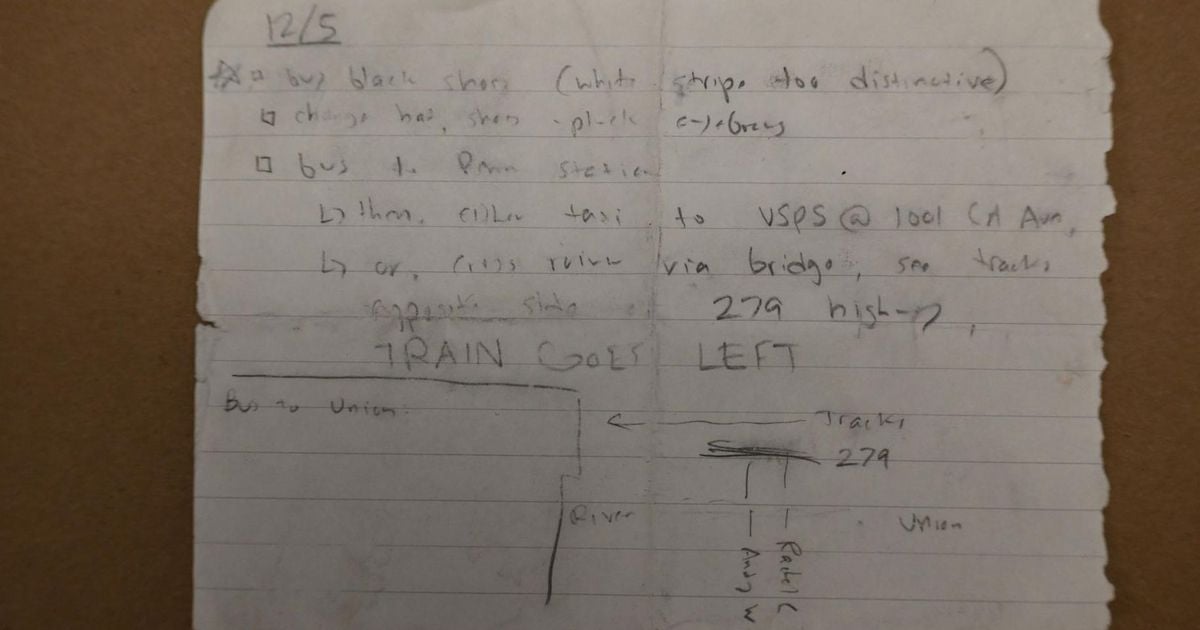 12/5
buy black shoes (white stripe too distinctive)
change hat, shoes pluck eyebrows
bus to Penn station
then, either taxi to USPS @ 1001 CA Ave,
or, cross river via bridge, see tracks
opposite side 279 highway,
TRAIN GOES LEFT
Bus to Union
Tracks
279
River
Union
Rachel C
Andy W